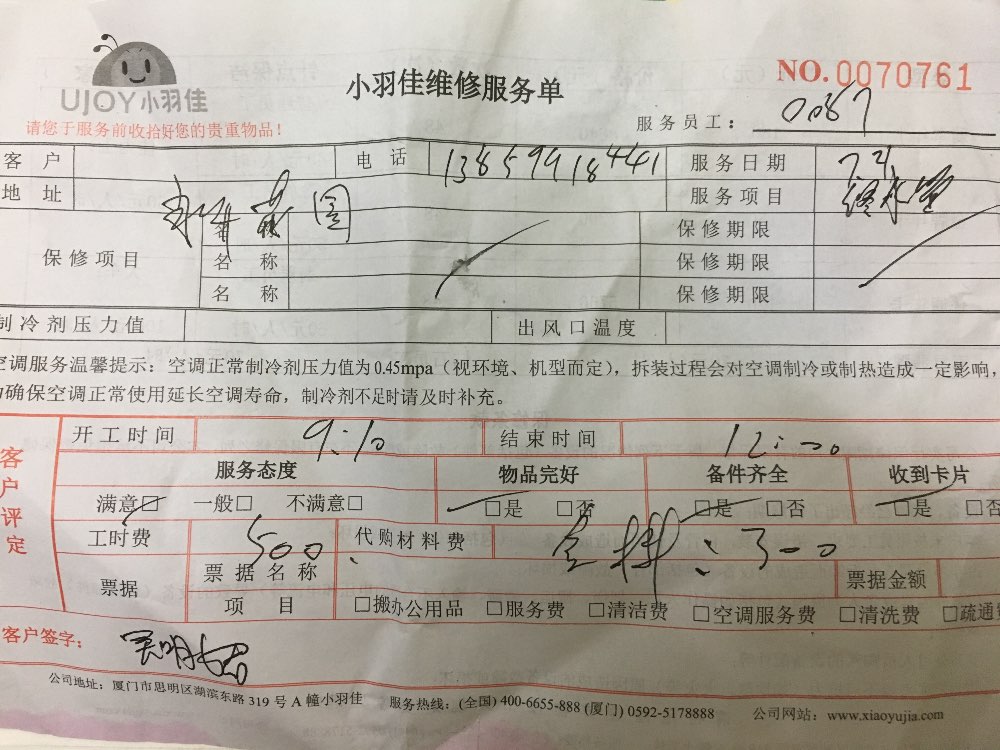 UJOY小羽佳
小羽佳维修服务单
NO.0070761
请您于服务前收拾好您的贵重物品!
服务员工: 0087
客户 电话 13859918441 服务日期 7.21
地址 服务项目
保修期限
保修项目 名称 保修期限
名称 保修期限
制冷剂压力值 出风口温度
空调服务温馨提示:空调正常制冷剂压力值为0.45mpa(视环境、机型而定),拆装过程会对空调制冷或制热造成一定影响,
为确保空调正常使用延长空调寿命,制冷剂不足时请及时补充。
客户评定
开工时间 9:10 结束时间 12:00
服务态度 物品完好 备件齐全 收到卡片
满意□ 一般□ 不满意□ □是 □否 □是 □否 □是 □否
工时费 500 代购材料费 :300
票据 票据名称 票据金额
项目 □搬办公用品 □服务费 □清洁费 □空调服务费 □清洗费 □疏通费
客户签字:
公司地址:厦门市思明区湖滨东路 319 号 A 幢小羽佳 服务热线:(全国) 400-6655-888 (厦门) 0592-5178888 公司网站:www.xiaoyujia.com